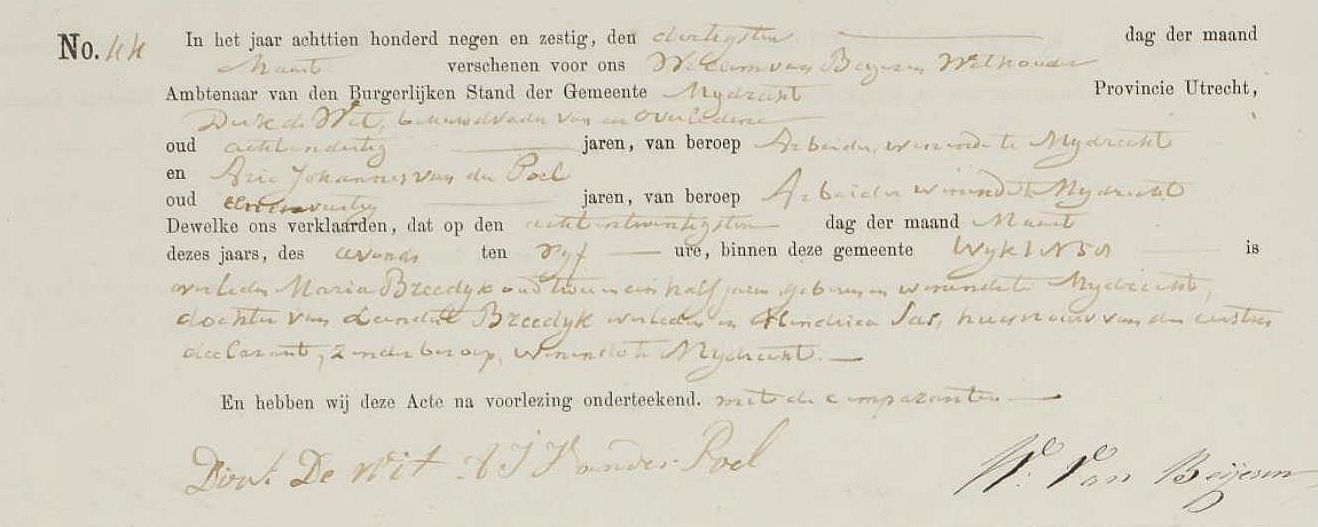 No. 44 In het jaar achttien honderd negen en zestig, den dertigsten dag der maand
Maart verschenen voor ons Willem van Beijeren Wethouder
Ambtenaar van den Burgerlijken Stand der Gemeente Mydrecht Provincie Utrecht,
Dirk de Wit, behuwdvader van de overledene
oud achtendertig jaren, van beroep Arbeider, wonende te Mydrecht
en Arie Johannes van der Poel
oud jaren, van beroep Arbeider wonende te Mydrecht
Dewelke ons verklaarden, dat op den achtentwintigsten dag der maand Maart
dezes jaars, des avonds ten vyf ure, binnen deze gemeente Wyk 1 N 50 is
overleden Maria Breedyk oud twee en een half jaren geboren en wonende te Mydrecht,
dochter van Leendert Breedyk overleden en Hendrica Sas, huisvrouw van den eersten
declarant, zonder beroep, wonende te Mydrecht.
En hebben wij deze Acte na voorlezing onderteekend. met de comparanten
Dirk De Wit A J Van der Poel W. Van Beijeren